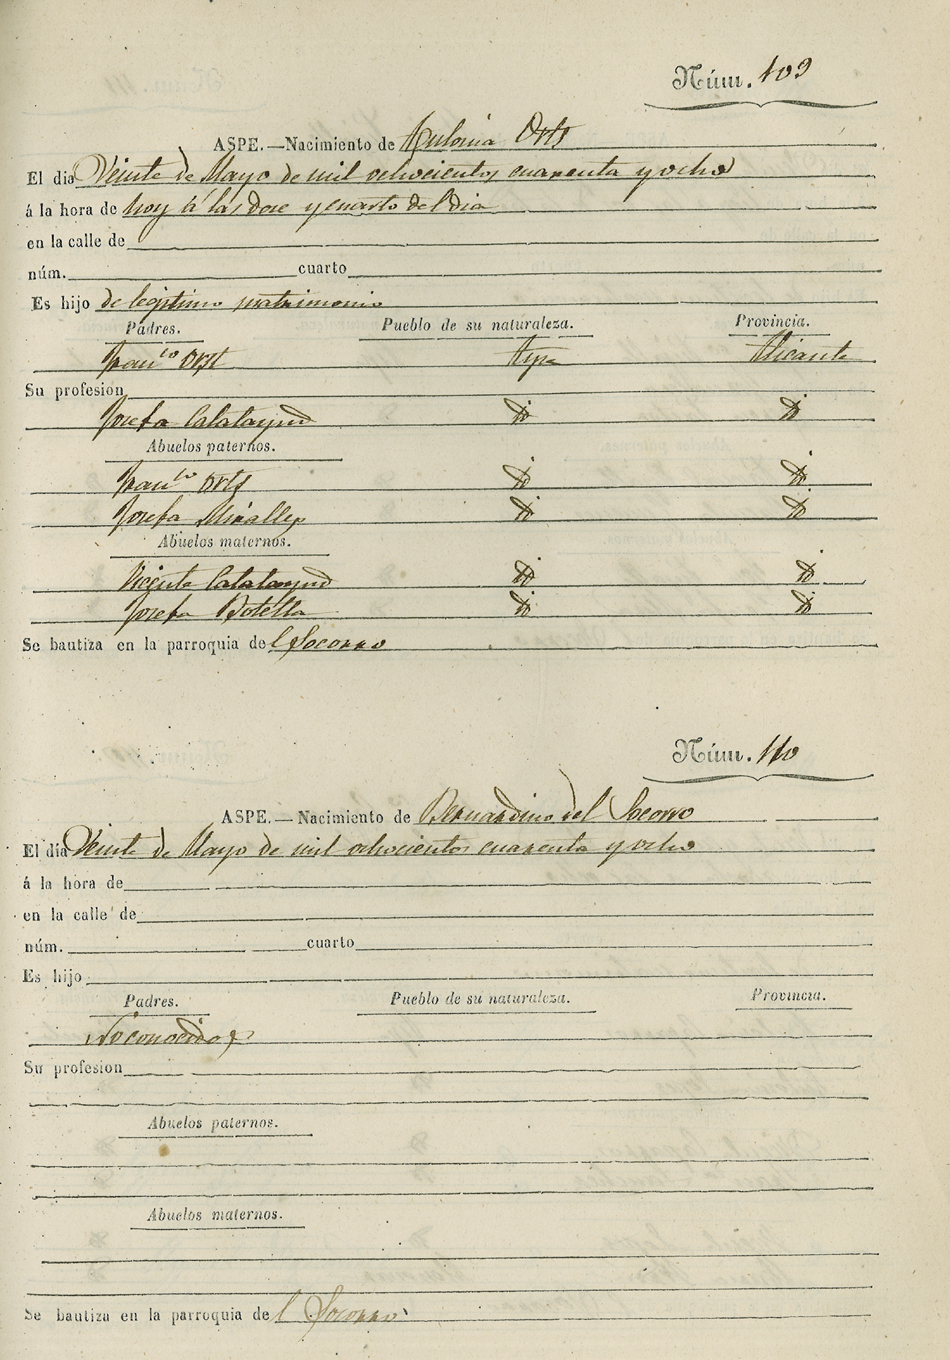 Núm. 109
ASPE.—Nacimiento de Antonia Orts
El dia Veinte de Mayo de mil ochocientos cuarenta y ocho
á la hora de hoy á las doce y cuarto del dia
en la calle de
núm. cuarto
Es hijo de legitimo matrimonio
Padres. Pueblo de su naturaleza. Provincia.
Franco Orts Aspe Alicante
Su profesion
Josefa Calatayud Id Id
Abuelos paternos.
Franco Orts Id Id
Josefa Miralles Id Id
Abuelos maternos.
Vicente Calatayud Id Id
Josefa Botella Id Id
Se bautiza en la parroquia del Socorro
Núm. 110
ASPE.—Nacimiento de Bernardino del Socorro
El dia Veinte de Mayo de mil ochocientos cuarenta y ocho
á la hora de
en la calle de
núm. cuarto
Es hijo
Padres. Pueblo de su naturaleza. Provincia.
No conocidos
Su profesion
Abuelos paternos.
Abuelos maternos.
Se bautiza en la parroquia del Socorro